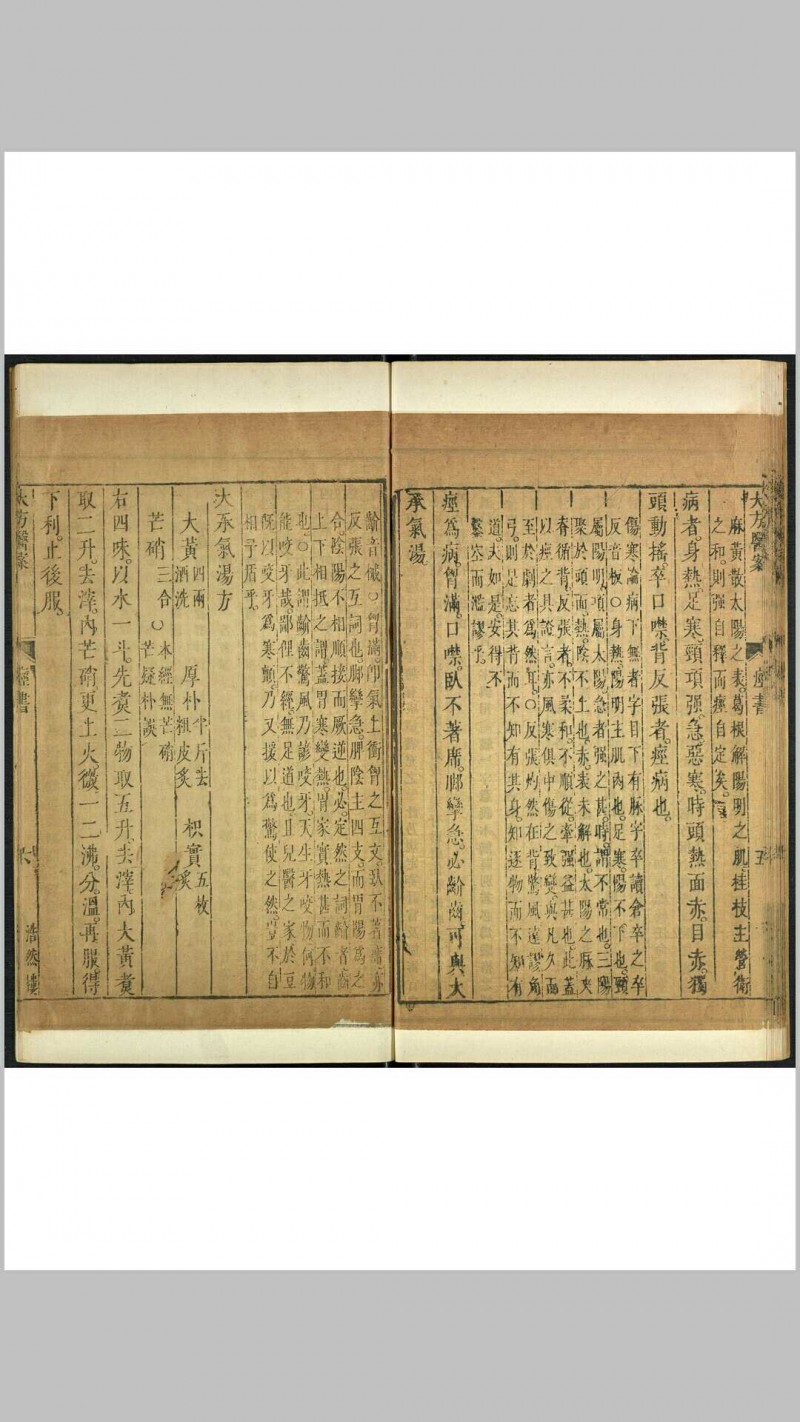 大方醫案 痙書 五
麻黃散太陽之表。葛根解陽明之肌。桂枝主營衛
之和。則強自釋而痙自定矣。
病者。身熱。足寒。頸項强急。惡寒。時頭熱面赤。目赤。獨
頭動搖。卒口噤。背反張者。痙病也。
傷寒論病下無者字目下有脉字卒讀倉卒之卒
反音板〇身熱。陽明主肌肉也。足寒。陽不下也。頸
屬陽明。項屬太陽。急者强之甚。時。謂不常也。三陽
聚於頭而熱。陰不上也。赤。表未解也。太陽之脉夾
脊循背。反張者。不柔和。不順從。牽强益甚也。此蓋
以痙之具證言。亦風寒俱中傷之致變。與凡久而
至於劇者爲然耳。〇反張灼然在背驚風遠謬角
弓。則是忘其背而不知有其身。知逐物而不知有
道。夫如是。安得不
鑿空而濫謬乎。
痙爲病。胷滿。口噤。臥不著席。脚攣急。必齘齒。可與大
承氣湯。
齘音械〇胷滿。卽氣上衝胷之互文。臥不著席。亦
反張之互詞也。脚攣急。脾陰主四支。而胃爲之
合。陰陽不相順接而厥逆也。必。定然之詞。齘者。齒
上下相抵之謂。蓋胃寒變熱。胃家實熱甚而不和
也。〇此謂齘齒驚風乃諺咬牙。天生牙咬物。何物
能咬牙哉。鄙俚不經。無足道也。且兒醫之家。於豆
既以咬牙爲寒顫。乃又援以爲驚使之然。豈不自
相予盾乎。
大承氣湯方
大黃 四兩酒洗 厚朴 半斤去粗皮炙 枳實 五枚炙
芒硝 三合 〇本經無芒硝芒疑朴誤
右四味。以水一斗。先煑二物。取五升。去滓。內大黃。煑
取二升。去滓。內芒硝。更上火。微一二沸。分。溫。再服。得
下利。止後服。
大方醫案 痙書 六 浩然樓